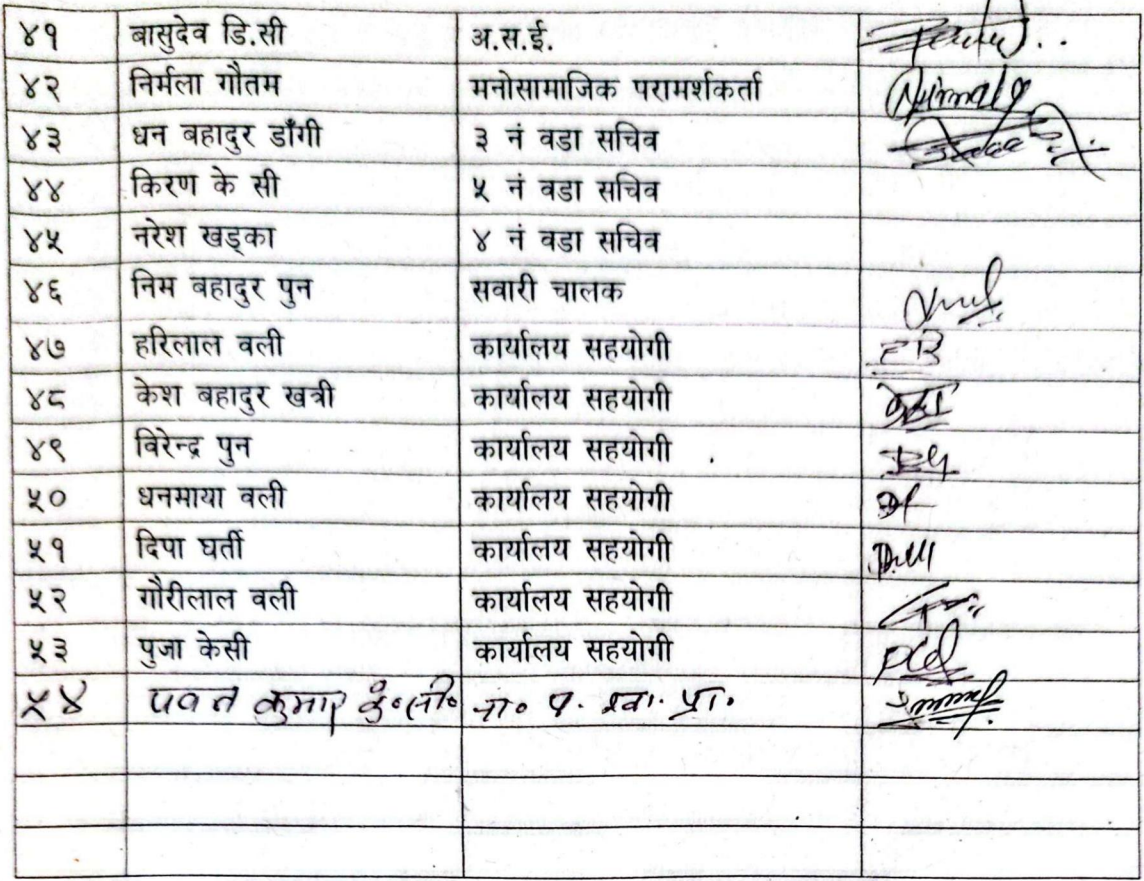 ४१ बासुदेव डि.सी अ.स.ई.
४२ निर्मला गौतम मनोसामाजिक परामर्शकर्ता Nirmala
४३ धन बहादुर डाँगी ३ नं वडा सचिव
४४ किरण के सी ५ नं वडा सचिव
४५ नरेश खड्का ४ नं वडा सचिव
४६ निम बहादुर पुन सवारी चालक
४७ हरिलाल वली कार्यालय सहयोगी
४८ केश बहादुर खत्री कार्यालय सहयोगी
४९ विरेन्द्र पुन कार्यालय सहयोगी
५० धनमाया वली कार्यालय सहयोगी
५१ दिपा घर्ती कार्यालय सहयोगी
५२ गौरीलाल वली कार्यालय सहयोगी
५३ पुजा केसी कार्यालय सहयोगी
५४ पवन कुमार के॰सी॰ प्रा.